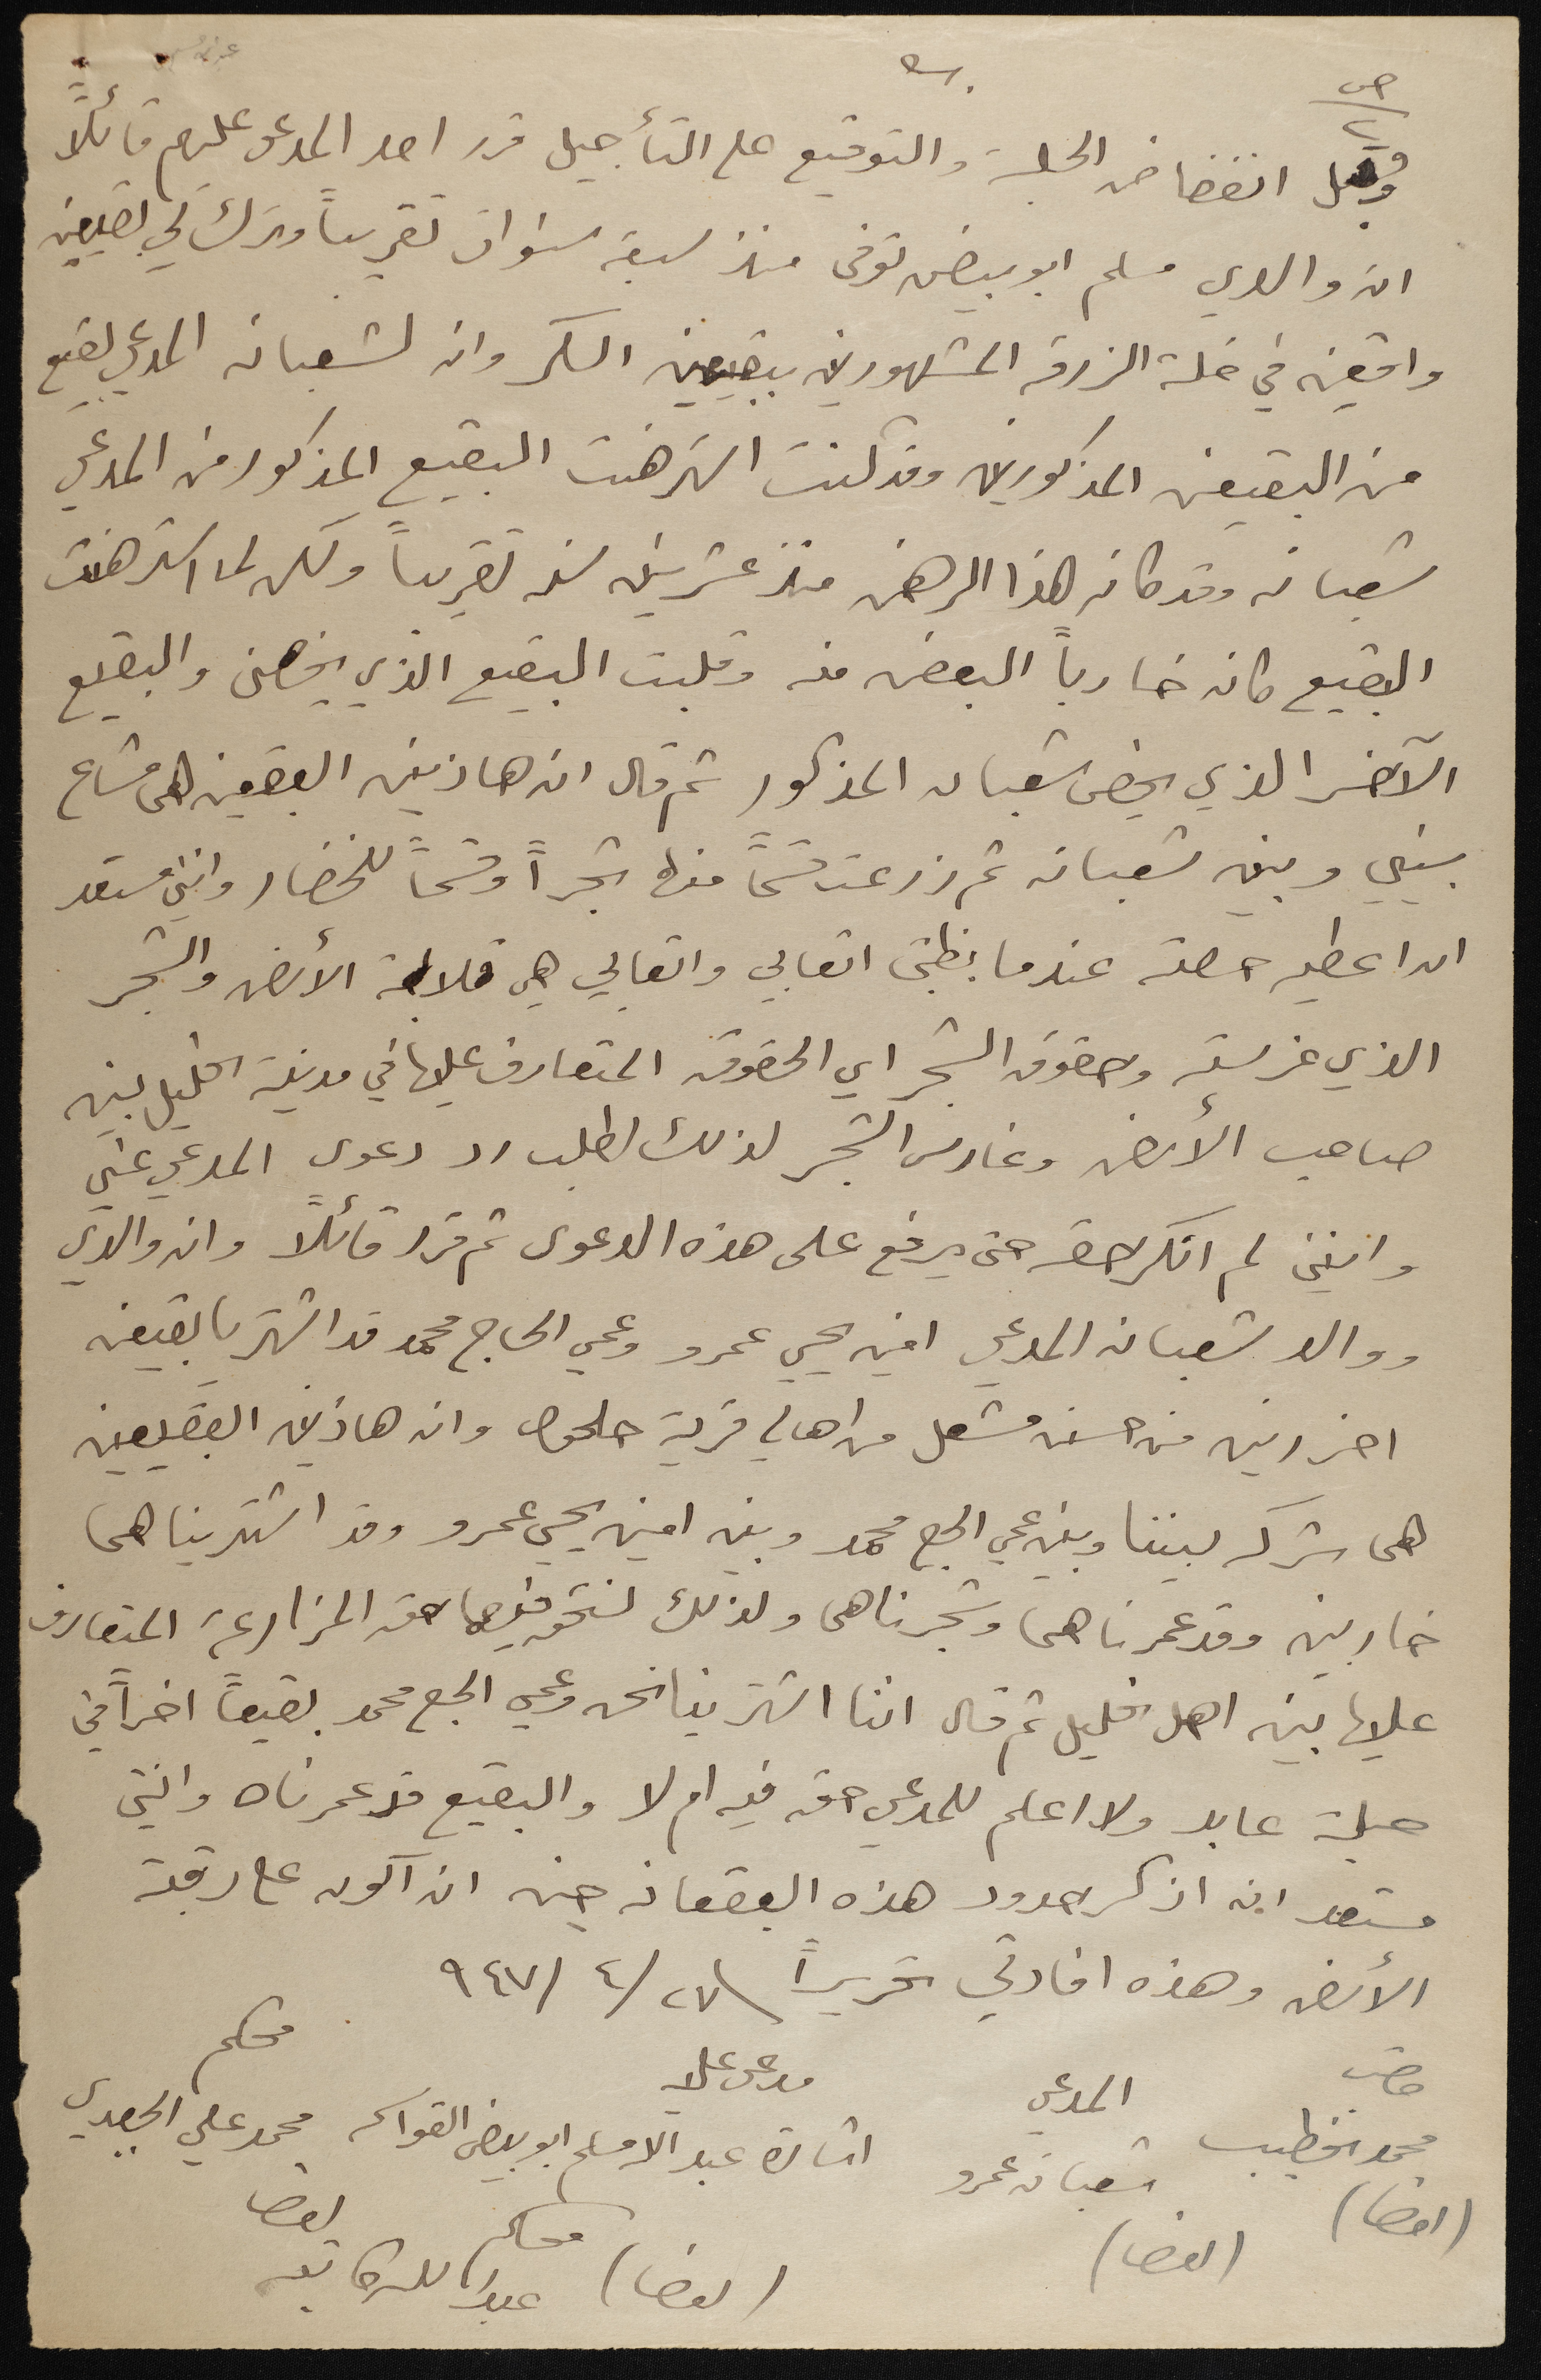 ص
٢
وقبل انفضاض الجلسة والتوقيع على التأجيل قرر احد المدعى عليهم قائلاً
ان والدي مسلم ابو بيض توفى منذ سبعة سنوات تقريباً وترك لي بقيعين
واقعين في خلة الزرقه المشهورين ببقيعين السكر وان لشعبان المدعي بقيع
من البقيعين المذكورين وقد كنت استرهنت البقيع المذكور من المدعي
شعبان وقد كان هذا الرهن منذ عشرين سنه تقريباً ولكن لما استرهنت
البقيع كان خارباً البعض منه وقلبت البقيع الذي يخصني والبقيع
الآخر الذي يخص شعبان المذكور ثم قال ان هاذين البقيعين هما مشاع
بيني وبين شعبان ثم زرعت قسماً منها شجراً وقسماً للخضار وانني مستعد
ان اعطيه حصته عندما يعطيني اتعابي واتعابي هي قلابة الأرض والشجر
الذي غرسته وحقوق الشجر اي الحقوق المتعارف عليها في مدينة الخليل بين
صاحب الأرض وغارس الشجر لذلك اطلب رد دعوى المدعي عني
وانني لم انكر حقه حتى يرفع على هذه الدعوى ثم قرر قائلاً وان والدي
ووالد شعبان المدعي امين يحيي عمرو وعمي الحاج محمد قد اشتريا بقيعين
اخرين من حسن مشعل من اهالي قرية حلحول وان هاذين البقيعين
هما شركه بيننا وبين عمي الحج محمد وبين امين يحيي عمرو وقد اشتريناهما
خاربين وقد عمرناهما وشجرناهما ولذلك نستحق فيهما حق المزارعة المتعارف
عليها بين اهل الخليل ثم قال اننا اشترينا نحن وعمي الحج محمد بقيعاً اخراً في
حبلة عابد ولا اعلم للمدعي حق فيه ام لا والبقيع قد عمرناه وانني
مستعد ان اذكر حدود هذه البقعان حين ان اكون على رقبة
الأرض وهذه افادتي تحريراً ٢٧/ ٤/ ٩٤٧
كاتب
محمد الخطيب
(امضا)
المدعي
شعبان عمرو
(امضا)
مدعى عليه
اشارة عبد الله مسلم ابو بيض القواسمه
(امضا)
محكم
محمد علي الجعبري
امضا
محكم
عبد الله